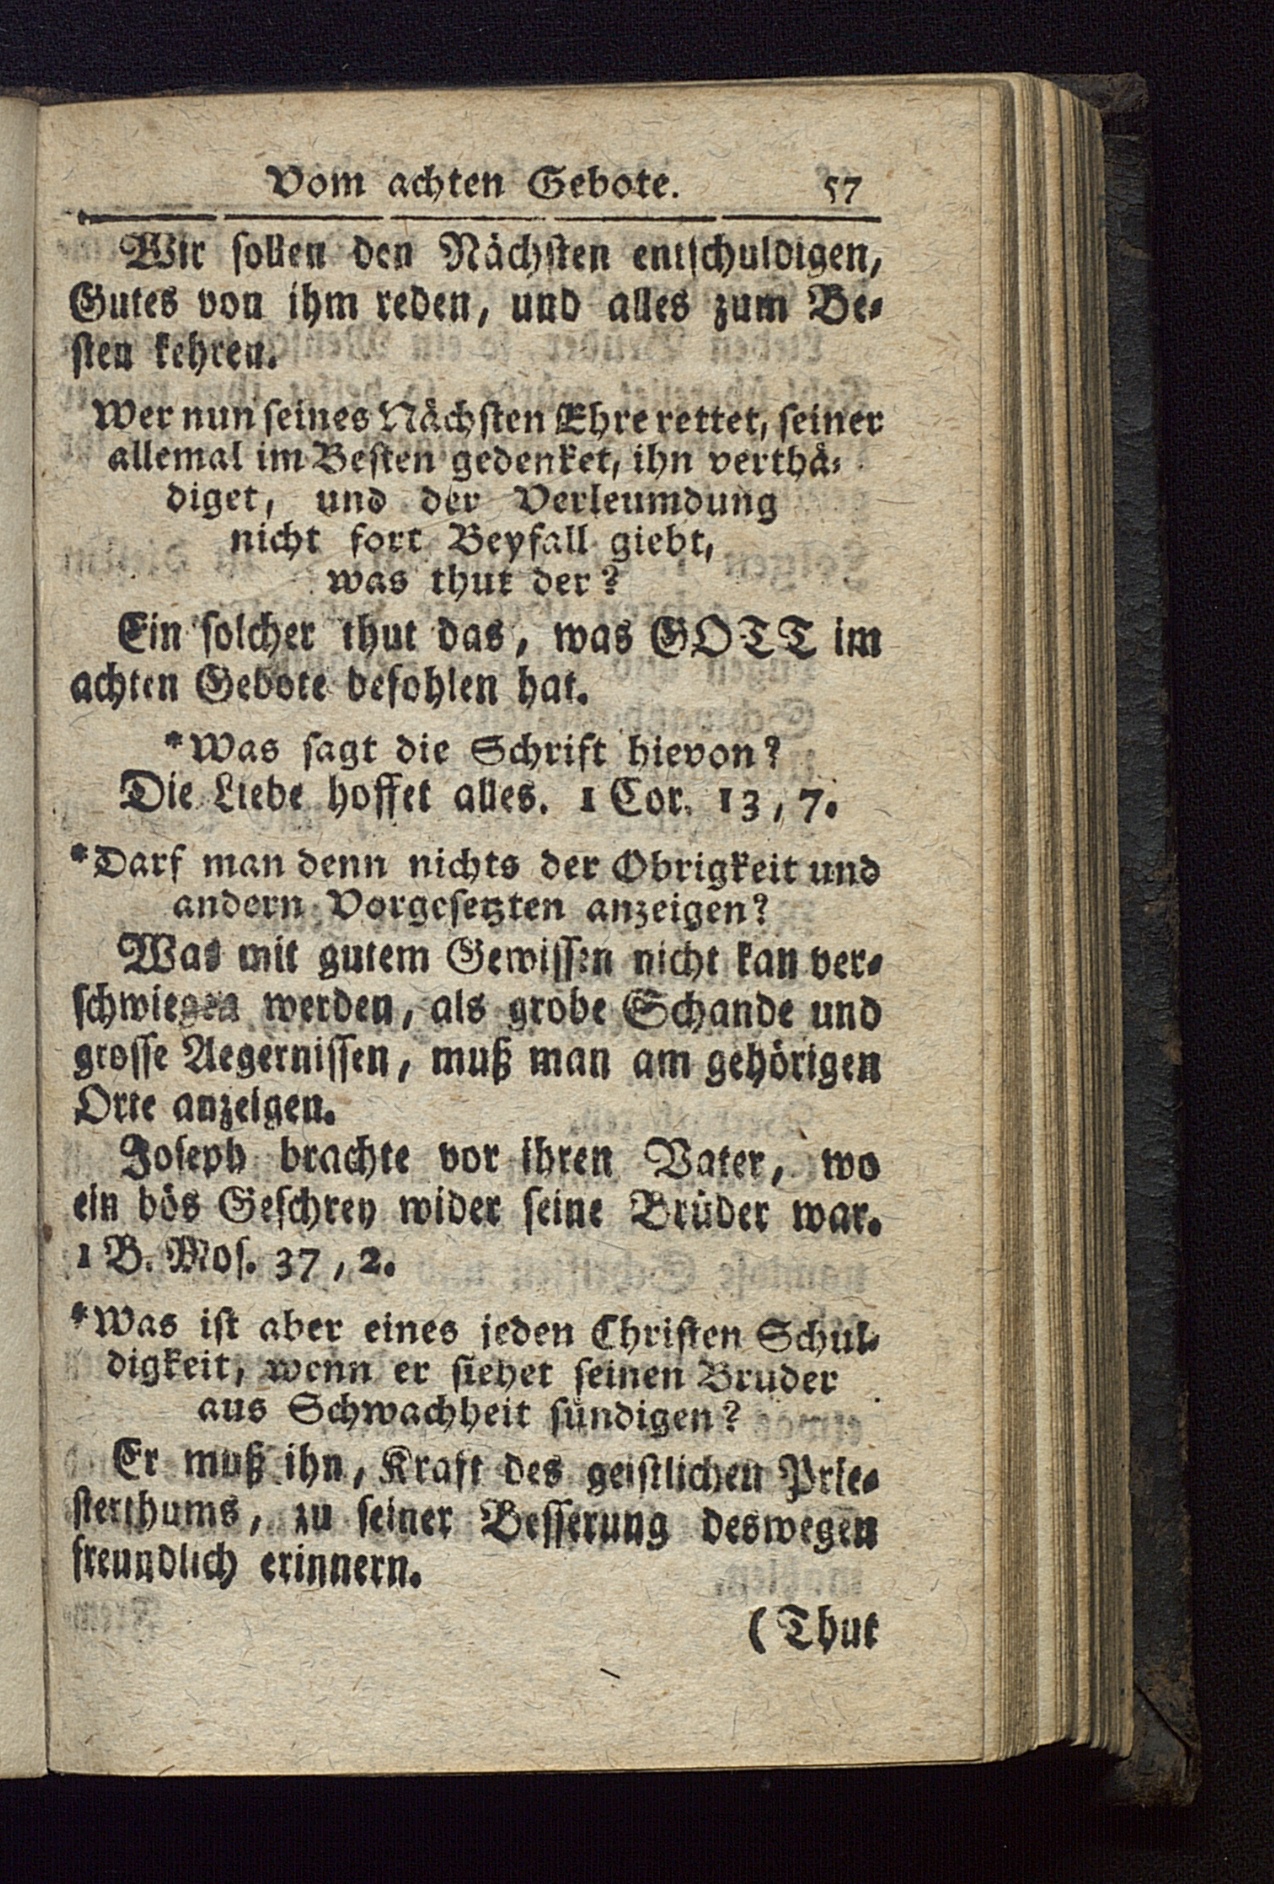 Vom achten Gebote. 57
Wir sollen den Nächsten entschuldigen,
Gutes von ihm reden, und alles zum Be-
sten kehren.
Wer nun seines Nächsten Ehre rettet, seiner
allemal im Besten gedenket, ihn verthä-
diget, und der Verleumdung
nicht fort Beyfall giebt,
was thut der?
Ein solcher thut das, was GOTT im
achten Gebote befohlen hat.
*Was sagt die Schrift hievon?
Die Liebe hoffet alles. 1 Cor. 13, 7.
*Darf man denn nichts der Obrigkeit und
andern Vorgesetzten anzeigen?
Was mit gutem Gewissen nicht kan ver-
schwiegen werden, als grobe Schande und
grosse Aegernissen, muß man am gehörigen
Orte anzeigen.
Joseph brachte vor ihren Vater, wo
ein bös Geschrey wider seine Brüder war.
1 B. Mos. 37, 2.
*Was ist aber eines jeden Christen Schul-
digkeit, wenn er siehet seinen Bruder
aus Schwachheit sündigen?
Er muß ihn, Kraft des geistlichen Prie-
sterthums, zu seiner Besserung deswegen
freundlich erinnern.
(Thut